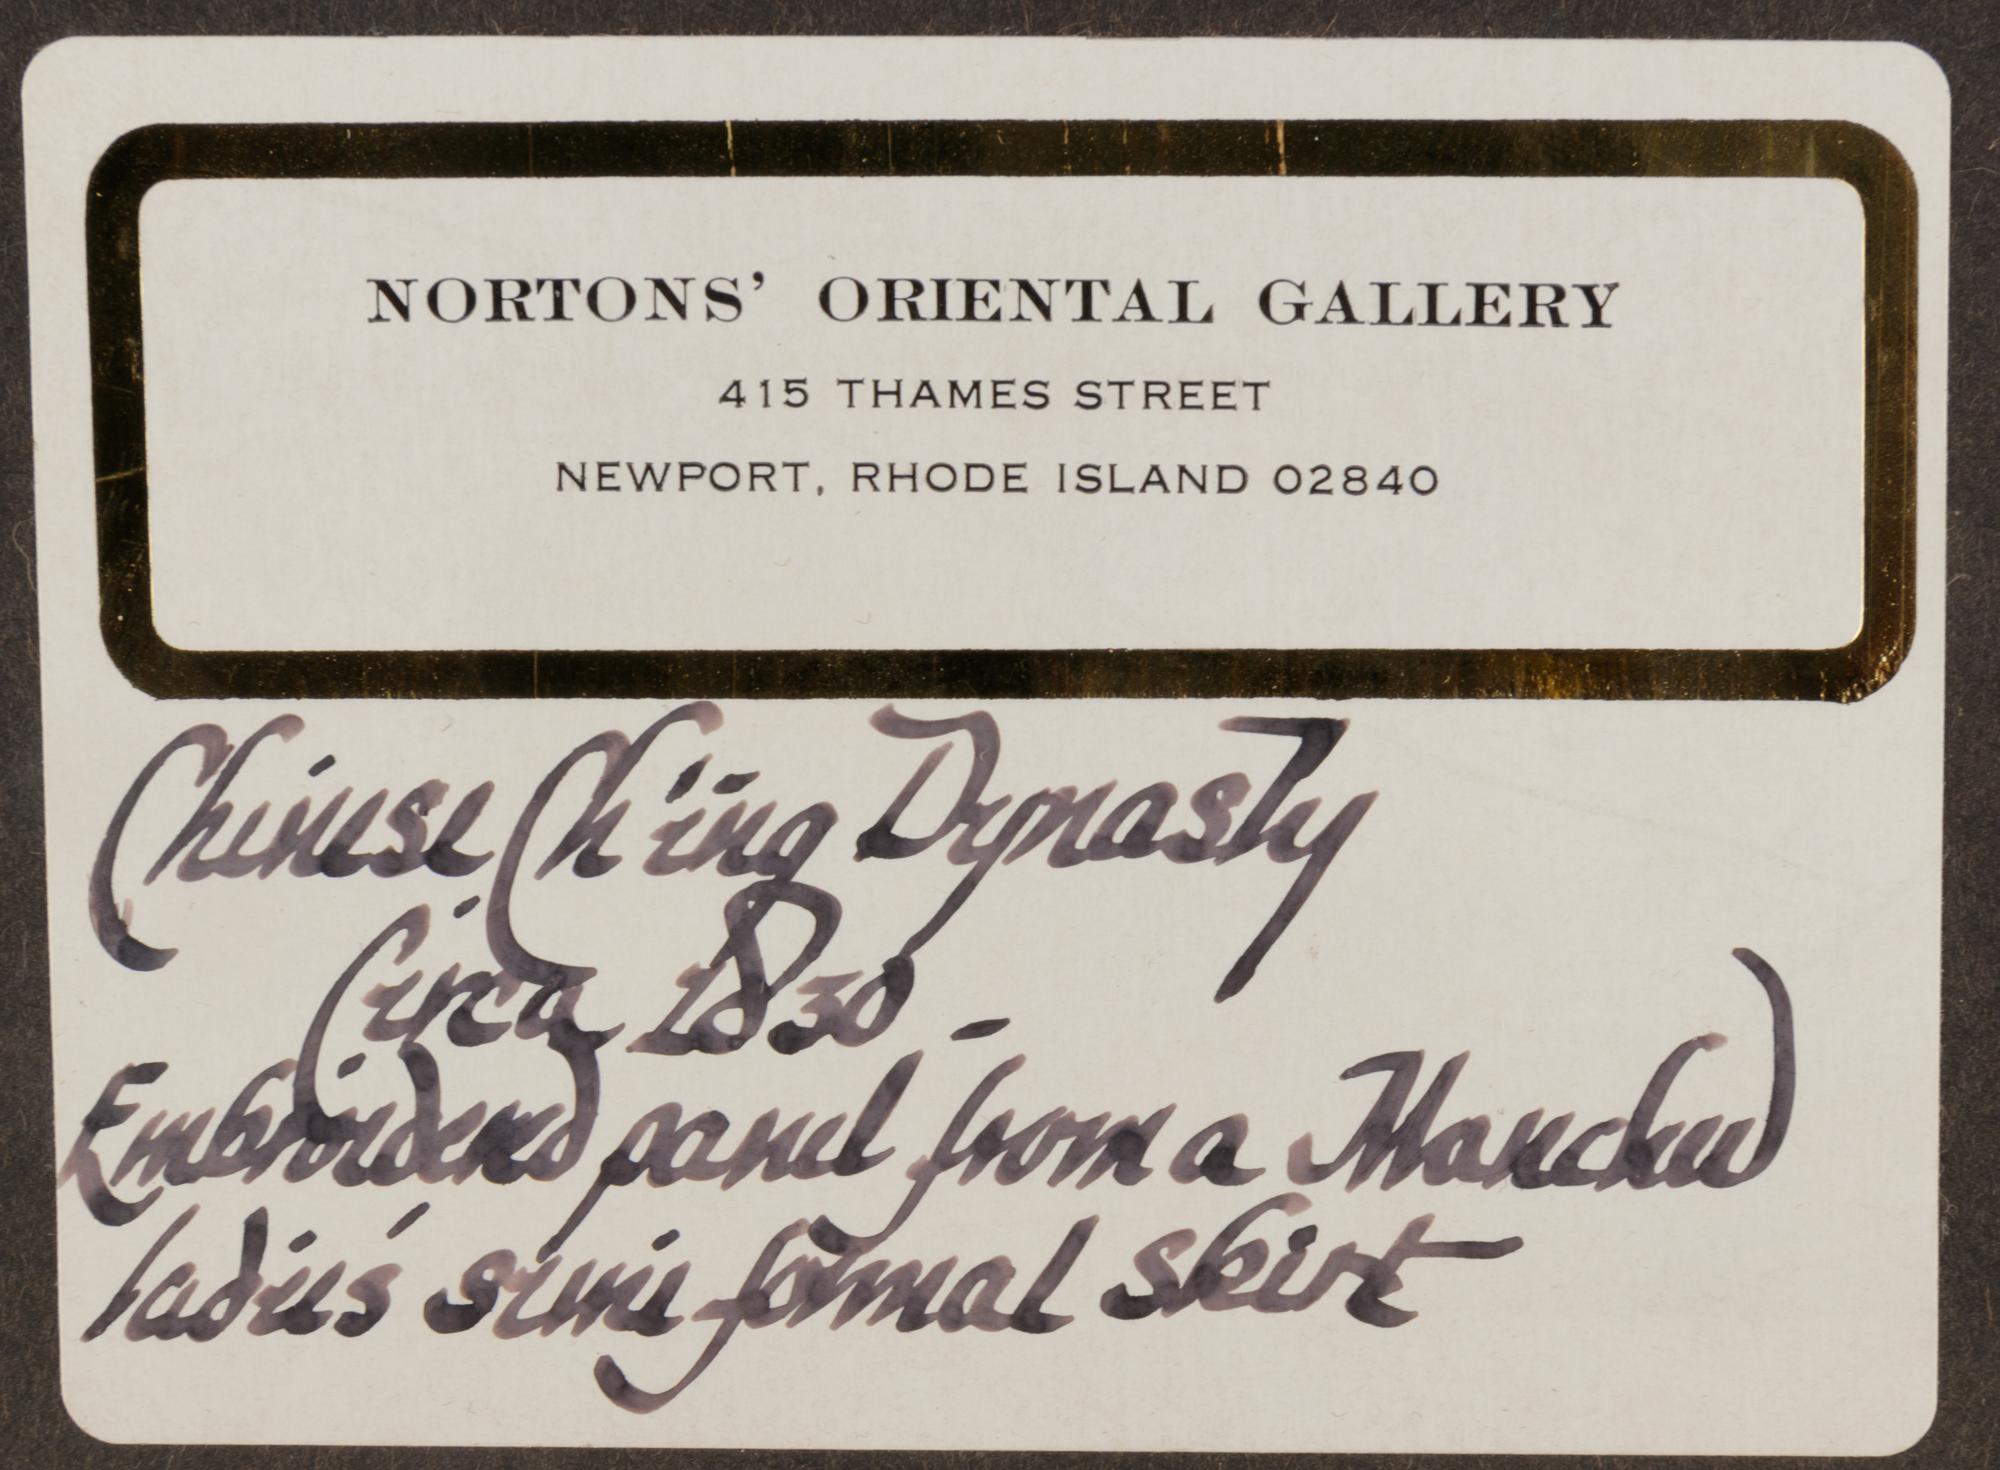 NORTONS' ORIENTAL GALLERY
415 THAMES STREET
NEWPORT, RHODE ISLAND 02840
Chinese Ch'ing Dynasty
Circa 1830 -
Embroidered panel from a Manchu
ladies' semi formal skirt